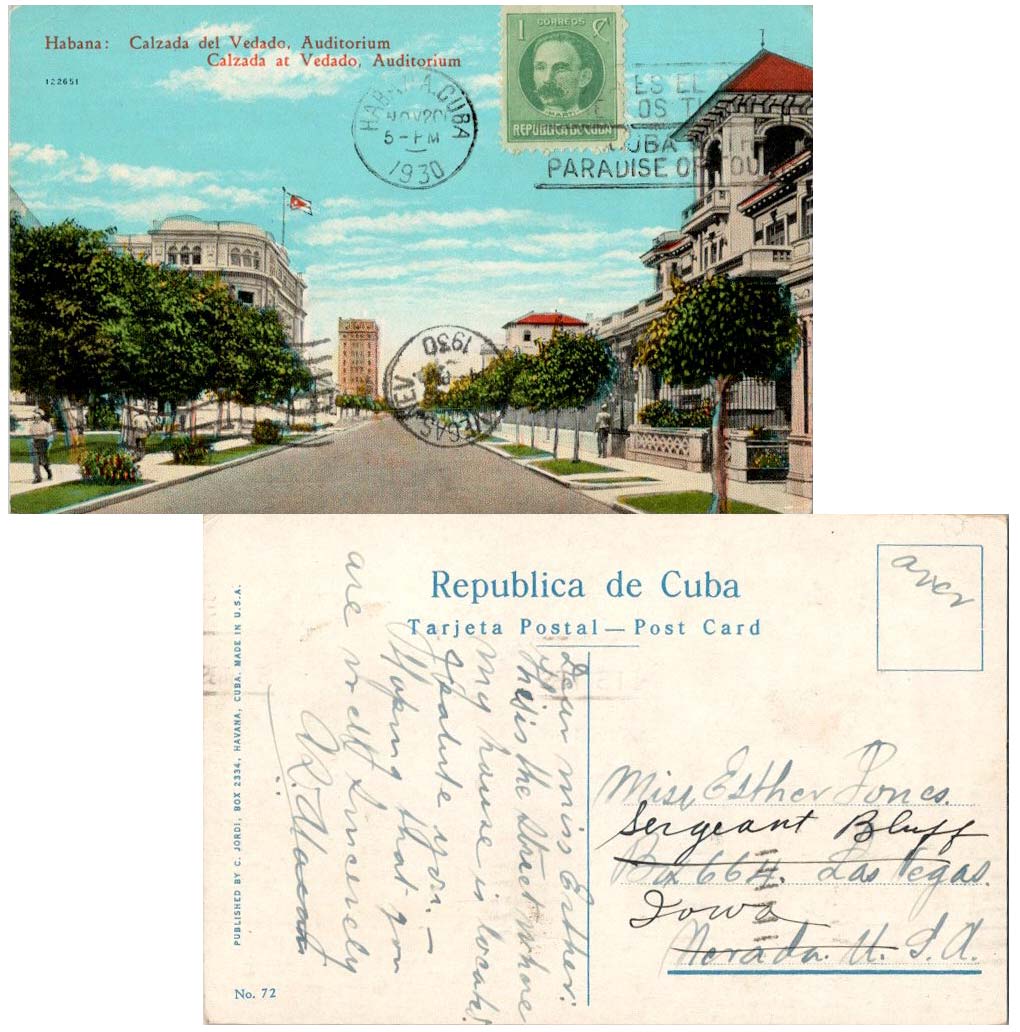 Habana: Calzada del Vedado, Auditorium
Calzada at Vedado, Auditorium
122651
HABANA. CUBA
NOV 20
5-PM
1930
1 CORREOS ¢
MARTI
REPUBLICA DE CUBA
ES EL
OS T
CUBA
PARADISE OF TOU
1930
VEGAS NEV
Republica de Cuba
Tarjeta Postal — Post Card
over
PUBLISHED BY C. JORDI, BOX 2334, HAVANA, CUBA. MADE IN U.S.A.
No. 72
Dear miss Esther:
This is the street where
my house is locatet.
I salute you. —
Hoping that you
are well Sincerely
Miss Esther Jones.
Sergeant Bluff
Box 664. Las Vegas.
Iowa
Nevada. U. S. A.